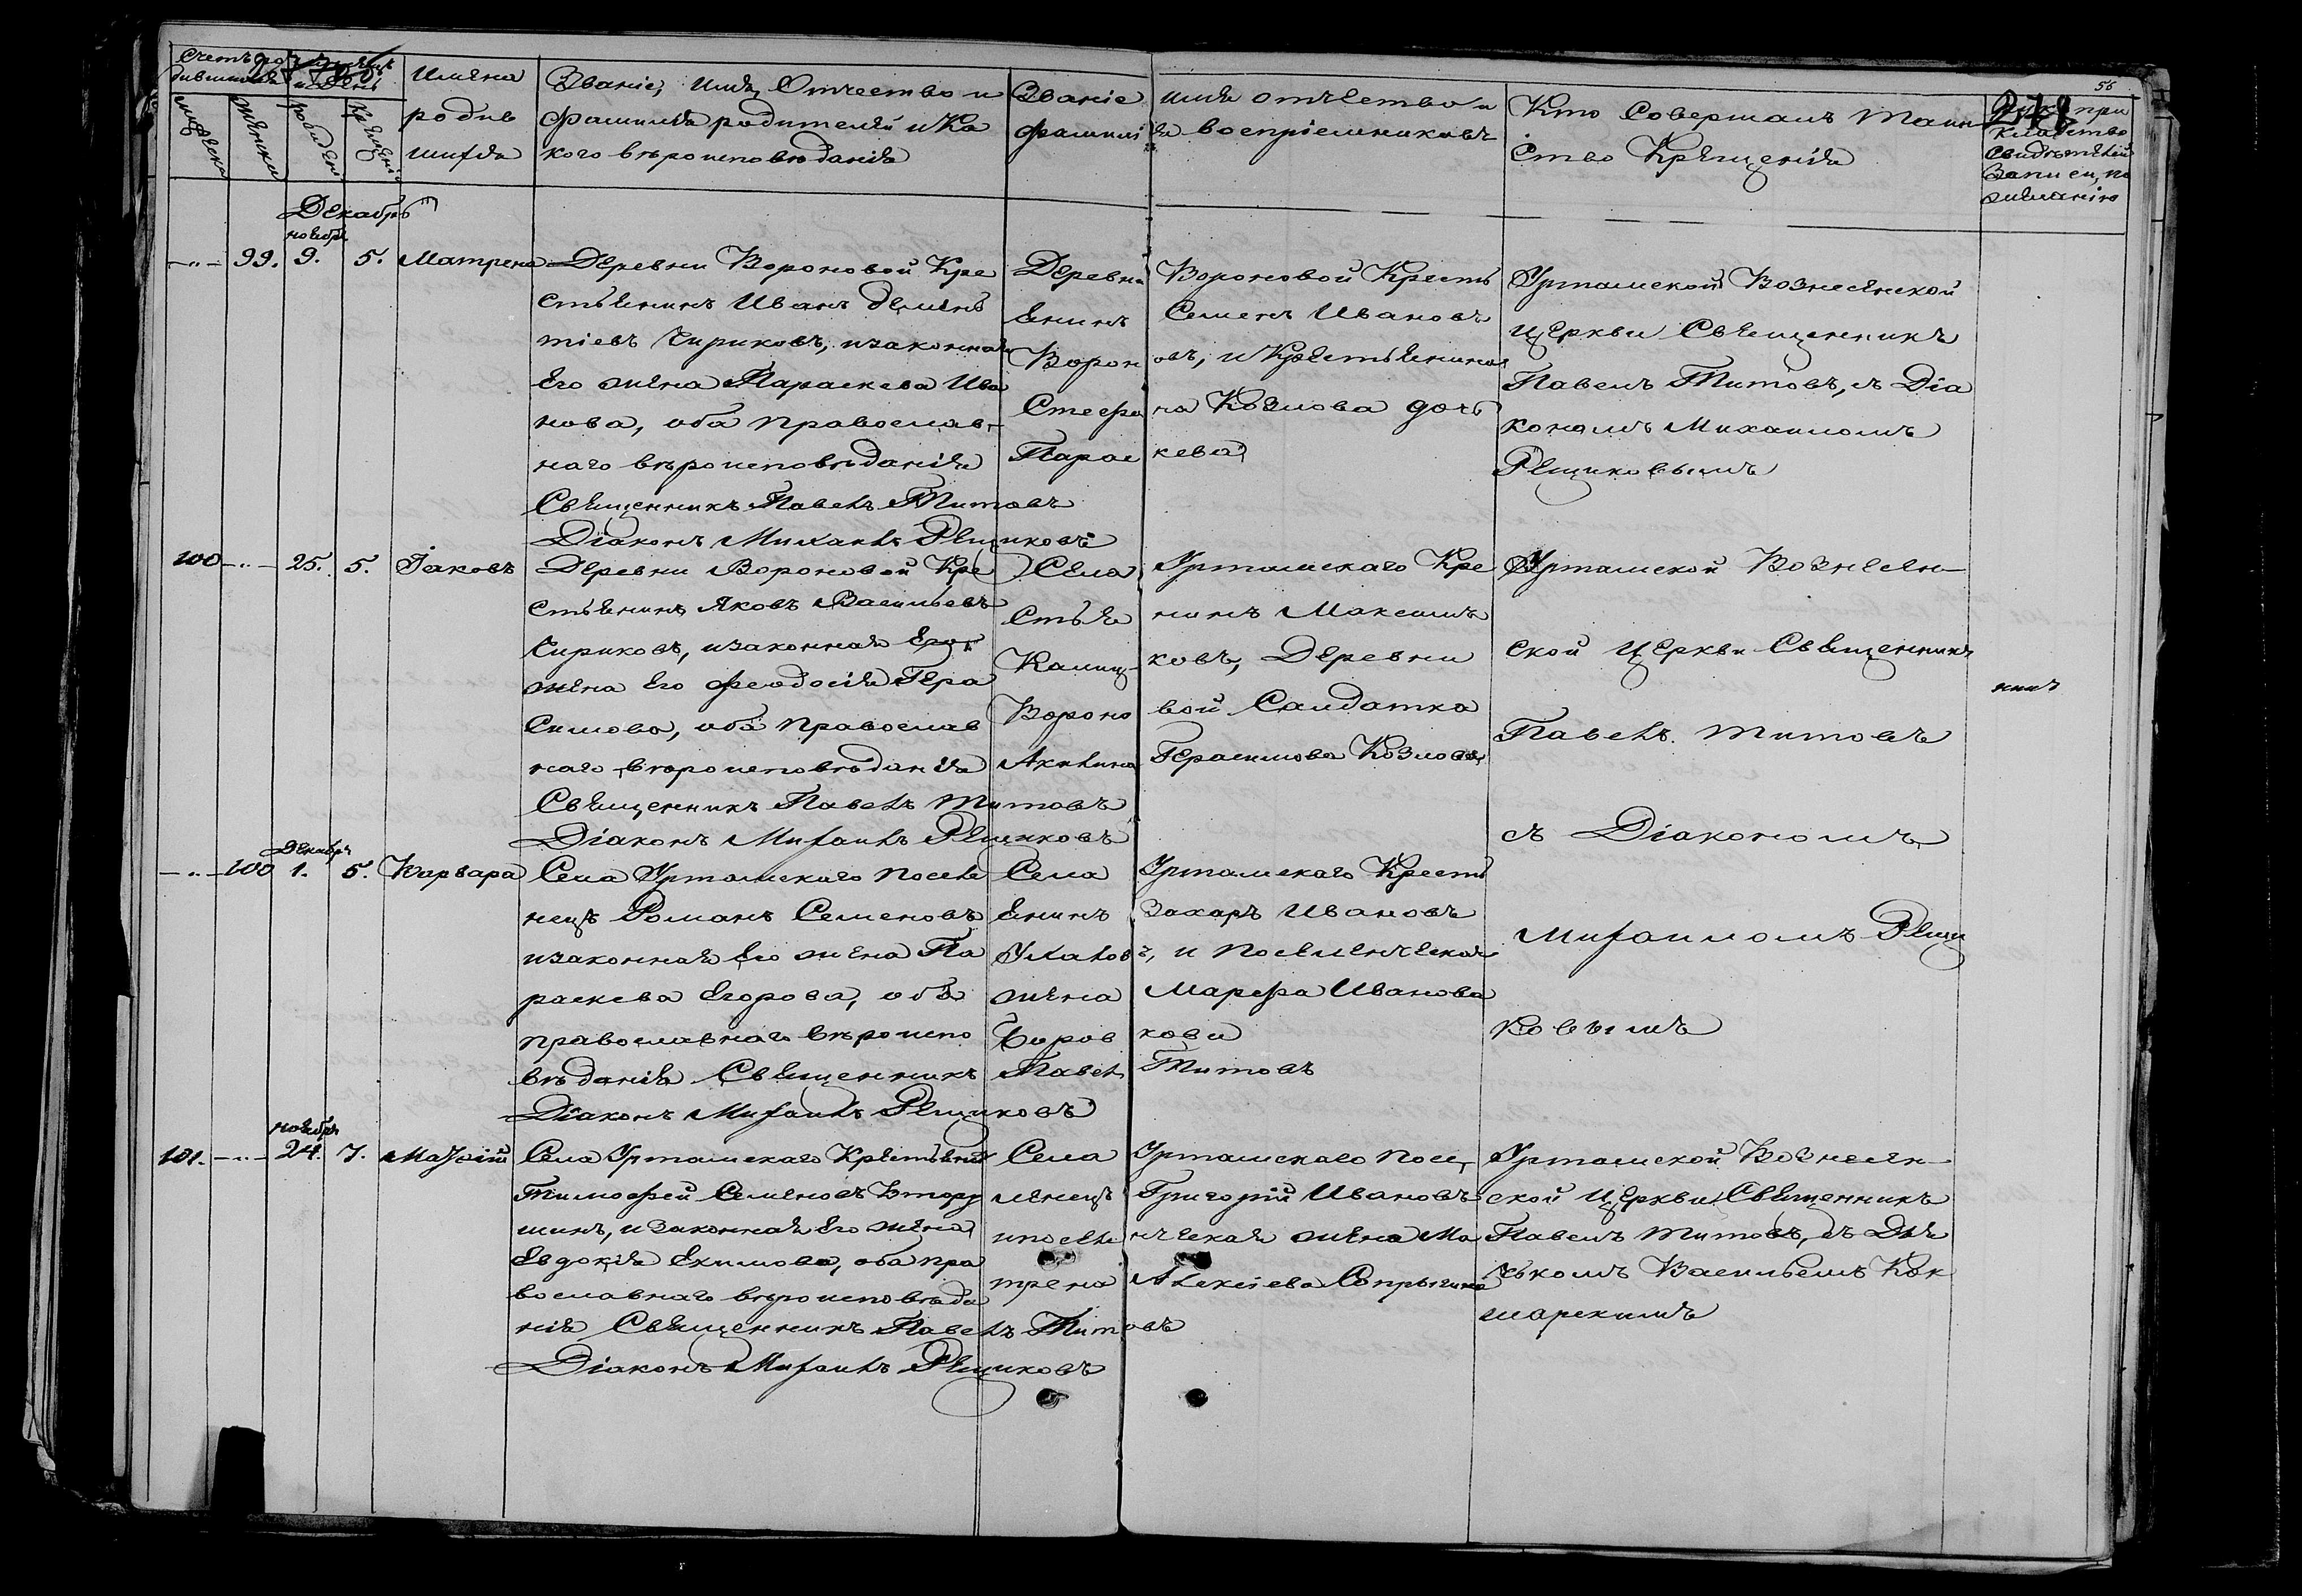 56
Счетъ ро
дившихся
и день
мужеска
женска
рожден.
крещенія
Имена
родив
шихся
Званіе, имя, Отчество и
фамилія родителей и Ка
кого вѣроисповѣданія
Званіе имя отчество и
фамилія воспріемниковъ
Кто Совершалъ Таин
ство Крещенія
при
кладство
свидѣтелей
Записи, по
желанію
Декабрь
ноября
—"— 99. 9. 5. Матрена
Деревни Вороновой Кре
стьянинъ Иванъ Демень
тіевъ Чириковъ, изаконная
Его жена Параскева Ива
нова, оба православ-
наго вѣроисповѣданія
Священникъ Павелъ Титовъ
Діаконъ Михаилъ Рещиковъ
Деревни Вороновой Кресть
янинъ Семенъ Ивановъ
Вороновъ, и Крестьянина
Стефана Козлова дочь
Параскева
Уртамской Вознесенской
церкви Священникъ
Павелъ Титовъ, съ Діа
кономъ Михаиломъ
Рещиковымъ
100 —"— 25. 5. Іаковъ
Деревни Вороновой Кре
стьянинъ Яковъ Васильевъ
Чириковъ, изаконная Его
жена Его Феодосія Гера
симова, оба православ
наго вѣроисповѣданія
Священникъ Павелъ Титовъ
Діаконъ Михаилъ Рещиковъ
Села Уртамскаго Кре
стьянинъ Максимъ
Калищковъ, Деревни
Вороновой Салдатка
Акилина Герасимова Козлова,
Уртамской Вознесен-
ской церкви Священникъ
никъ
Павелъ Титовъ
съ Діакономъ
Михаиломъ Рещи
ковымъ
Декабря
—"— 100 1. 5. Варвара
Села Уртамскаго поселе
нецъ Романъ Семеновъ
изаконная Его жена Па
раскева Егорова, оба
православнаго вѣроиспо
вѣданія Священникъ Павелъ Титовъ
Діаконъ Михаилъ Рещиковъ
Села Уртамскаго Кресть
янинъ Захаръ Ивановъ
и поселенческая
жена Марфа Иванова
ноября
101. —"— 24. 7. Матѳій
Села Уртамскаго Крестьянинъ
Тимофей Семеновъ Втору
шинъ, и законная Его жена
Евдокія Екимова, оба пра
вославнаго вѣроисповѣда
нія Священникъ Павелъ Титовъ
Діаконъ Михаилъ Рещиковъ
Села Уртамскаго посе,
ленецъ Григорій Ивановъ
ипоселенческая жена Ма
трена Алексіева Сопрыгина
Уртамской Вознесен-
ской церкви Священникъ
Павелъ Титовъ, съ Дья
чькомъ Васильемъ Кок
шарскимъ